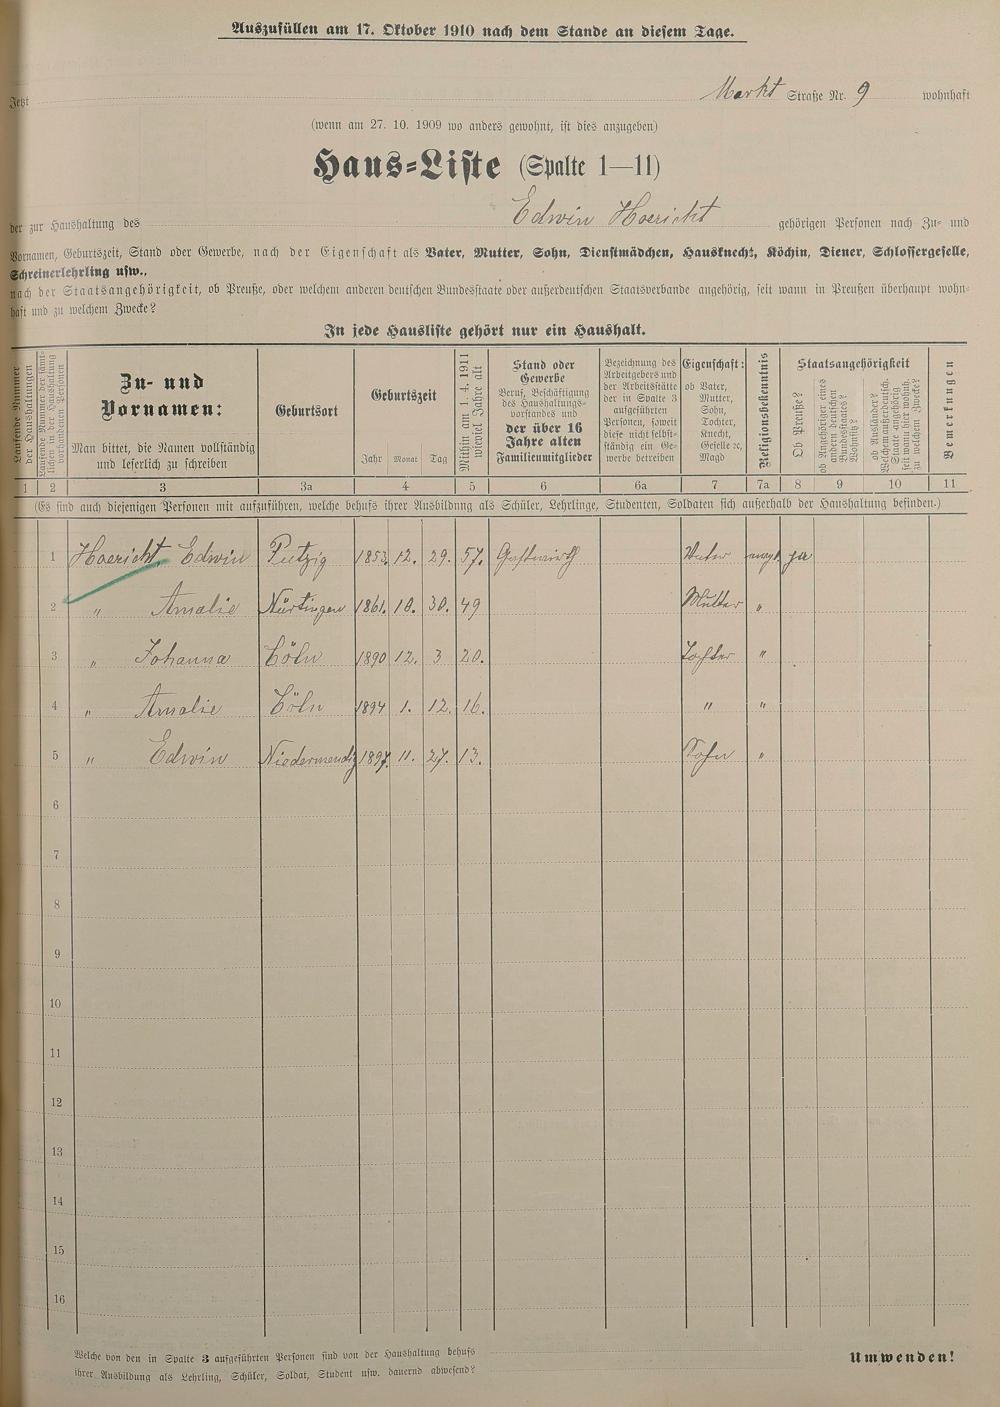 Auszufüllen am 17. Oktober 1910 nach dem Stande an diesem Tage.
Jetzt Markt Straße Nr. 9 wohnhaft
(wenn am 27. 10. 1909 wo anders gewohnt, ist dies anzugeben)
Haus-Liste (Spalte 1—11)
der zur Haushaltung des Edwin Hoericht gehörigen Personen nach Zu- und
Vornamen, Geburtszeit, Stand oder Gewerbe, nach der Eigenschaft als Vater, Mutter, Sohn, Dienstmädchen, Hausknecht, Köchin, Diener, Schlossergeselle,
Schreinerlehrling usw.,
nach der Staatsangehörigkeit, ob Preuße, oder welchem anderen deutschen Bundesstaate oder außerdeutschen Staatsverbande angehörig, seit wann in Preußen überhaupt wohn-
haft und zu welchem Zwecke?
In jede Hausliste gehört nur ein Haushalt.
Laufende Nummer
der Haushaltungen
Laufende Nummer der sämt-
lichen in der Haushaltung
vorhandenen Personen
Zu- und
Vornamen:
Man bittet, die Namen vollständig
und leserlich zu schreiben
Geburtsort
Geburtszeit
Jahr Monat Tag
Mithin am 1. 4. 1911
wieviel Jahre alt
Stand oder
Gewerbe
Beruf, Beschäftigung
des Haushaltungs-
vorstandes und
der über 16
Jahre alten
Familienmitglieder
Bezeichnung des
Arbeitgebers und
der Arbeitsstätte
der in Spalte 3
aufgeführten
Personen, soweit
diese nicht selbst-
ständig ein Ge-
werbe betreiben
Eigenschaft:
ob Vater,
Mutter,
Sohn,
Tochter,
Knecht,
Geselle ꝛc,
Magd
Religionsbekenntnis
Staatsangehörigkeit
Ob Preuße?
ob Angehöriger eines
andern deutschen
Bundesstaates?
Womit?
ob Ausländer?
Welchem außerdeutsch.
Staate angehörig
seit wann hier wohnh.
zu welchem Zwecke?
Bemerkungen
1 2 3 3a 4 5 6 6a 7 7a 8 9 10 11
(Es sind auch diejenigen Personen mit aufzuführen, welche behufs ihrer Ausbildung als Schüler, Lehrlinge, Studenten, Soldaten sich außerhalb der Haushaltung befinden.)
1 Hoericht, Edwin 1853. 12. 29. 57. Gastwirth Vater ja
2 " Amalie Nürtingen 1861. 10. 30. 49 Mutter "
3 " Johanna Cöln 1890 12. 3 20. Tochter "
4 " Amalie Cöln 1894 1. 12. 16. " "
5 " Edwin Niedermendig 1897. 11. 27. 13. Sohn "
6
7
8
9
10
11
12
13
14
15
16
Welche von den in Spalte 3 aufgeführten Personen sind von der Haushaltung behufs
ihrer Ausbildung als Lehrling, Schüler, Soldat, Student usw. dauernd abwesend?
Umwenden!